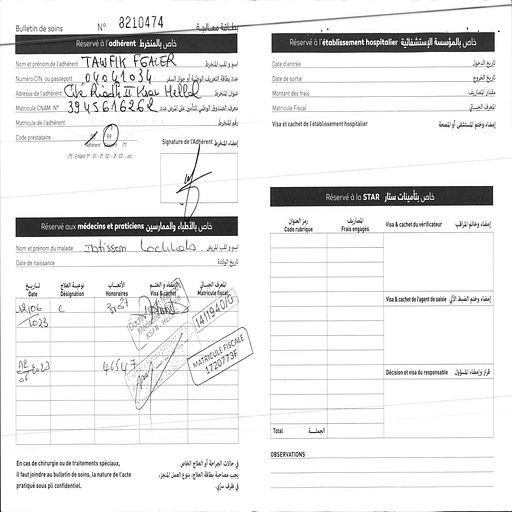 Bulletin de soins N° 8210474 بطاقة معالجة
Réservé à l'adhérent خاص بالمنخرط
Nom et prénom de l'adhérent TAWFIK اسم و لقب المنخرط
Numéro CIN ou passeport 04041034 عدد بطاقة التعريف الوطنية أو جواز السفر
Adresse de l'adhérent Cité Riadh II Ksar Hellal عنوان المنخرط
Matricule CNAM. N° معرف الصندوق الوطني للتأمين على المرض عدد
Matricule de l'adhérent رقم المنخرط
Code prestataire 99
Signature de l'Adhérent إمضاء المنخرط
(*) : Enfant 1er : 01 - 2 : 02 - 3 : 03 ... etc
Réservé aux médecins et praticiens خاص بالأطباء والممارسين
Nom et prénom du malade Ibtissem اسم و لقب المريض
Date de naissance تاريخ الولادة
تاريخ نوعية العلاج الأتعاب الإمضاء و الختم المعرف الجبائي
Date Désignation Honoraires Visa & cachet Matricule fiscal
12/06 C
2023
KSAR HELLAL
1411940/G
2023
MATRICULE FISCALE
1720773F
En cas de chirurgie ou de traitements spéciaux,
il faut joindre au bulletin de soins, la nature de l'acte
pratiqué sous pli confidentiel.
في حالات الجراحة أو العلاج الخاص
يجب مصاحبة بطاقة العلاج، بنوع العمل المنجز،
في ظرف سري.
Réservé à l'établissement hospitalier خاص بالمؤسسة الإستشفائية
Date d'entrée تاريخ الدخول
Date de sortie تاريخ الخروج
Montant des frais مقدار المصاريف
Matricule Fiscal المعرف الجبائي
Visa et cachet de l'établissement hospitalier إمضاء وختم المستشفى أو المصحة
Réservé à la STAR خاص بتأمينات ستار
رمز العنوان المصاريف
Code rubrique Frais engagés
Visa & cachet du vérificateur إمضاء وخاتم المراقب
Visa & cachet de l'agent de saisie إمضاء وختم الضبط الآلي
Décision et visa du responsable قرار وإمضاء المسؤول
Total الجملة
OBSERVATIONS